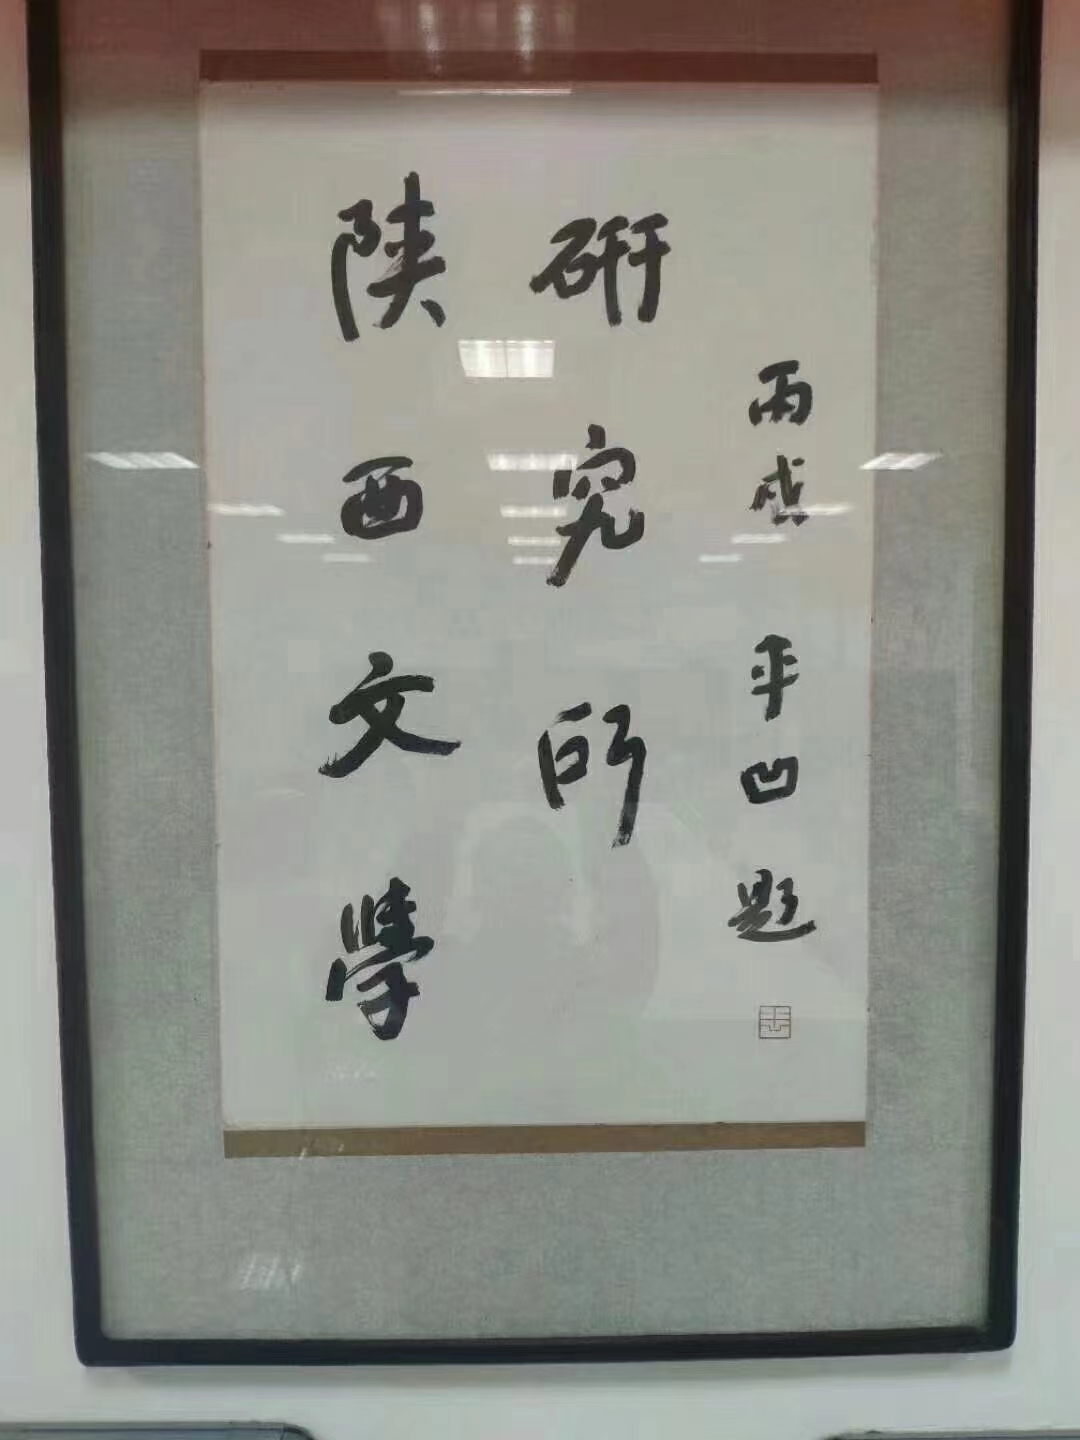 陕西文学
研究所
丙戌 平凹题